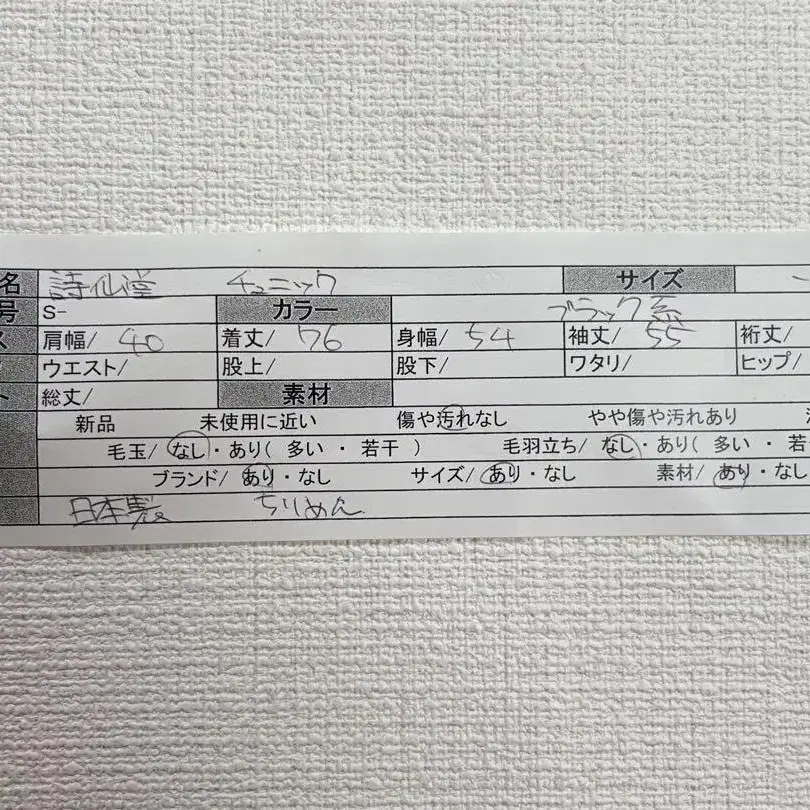 名 詩仙堂 チュニック サイズ
号 S- カラー ブラック系
肩幅/ 40 着丈/ 76 身幅/ 54 袖丈/ 55 裄丈/
ウエスト/ 股上/ 股下/ ワタリ/ ヒップ/
ト 総丈/ 素材
新品 未使用に近い 傷や汚れなし やや傷や汚れあり
毛玉/ なし・あり( 多い ・ 若干 ) 毛羽立ち/ なし・あり( 多い ・ 若
ブランド/ あり・なし サイズ/ あり・なし 素材/ あり・なし
日本製 ちりめん